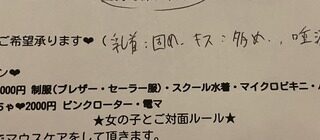 ご希望承ります❤（乳首：固め、キス：多め、唾液
ン❤
000円 制服(ブレザー・セーラー服)・スクール水着・マイクロビキニ・
ちゃ❤2000円 ピンクローター・電マ
★女の子とご対面ルール★
でマウスケアをして頂きます。